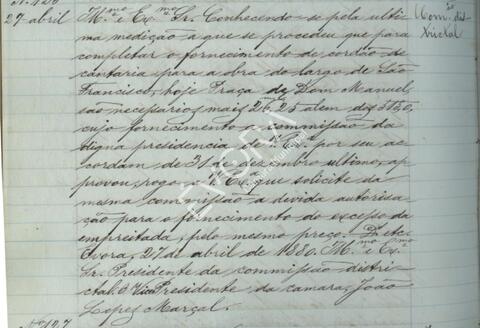 27-abril
Com.ão dis-
trictal
Ill.mo e Ex.mo Sr. Conhecendo-se pela ulti-
ma medição a que se procedeu que para
completar o fornecimento de cordão de
cantaria para a obra do largo de São
Francisco, hoje Praça de Dom Manuel,
são necessarios mais 26,25 alem dos
cujo fornecimento a commissão da
digna presidencia de V. Ex.ª por seu ac-
cordam de 31 de dezembro ultimo, ap-
provou, rogo a V. Ex.ª que solicite da
mesma commissão a devida autorisa-
ção para o fornecimento do excesso da
empreitada, pelo mesmo preço. D. etc.
Evora, 27 de abril de 1880. Ill.mo e Ex.mo
Sr. Presidente da commissão distri-
ctal. O Vice Presidente da camara, João
Lopes Marçal.
Nº 127